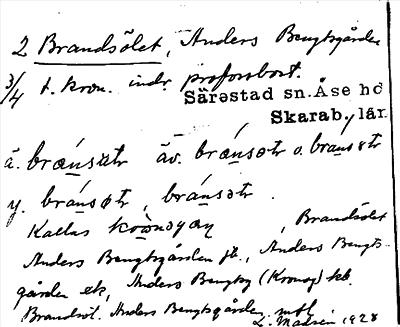 2 Brandsölet, Anders Bengtsgården
3/4 f. kron. indr. profosbost.
Särestad sn. Åse hd
Skarab. län.
ä. bränsøtr äv. bränsətr o. bransøtr
y. bránsøtr, bránsətr.
Kallas , Brandsölet
Anders Bengtsgården jb., Anders Bengts-
gården ek, Anders Bengtsg (Kronog) kb.
Brandsöl. Anders Bengtsgården mtl
L. Madsén 1928